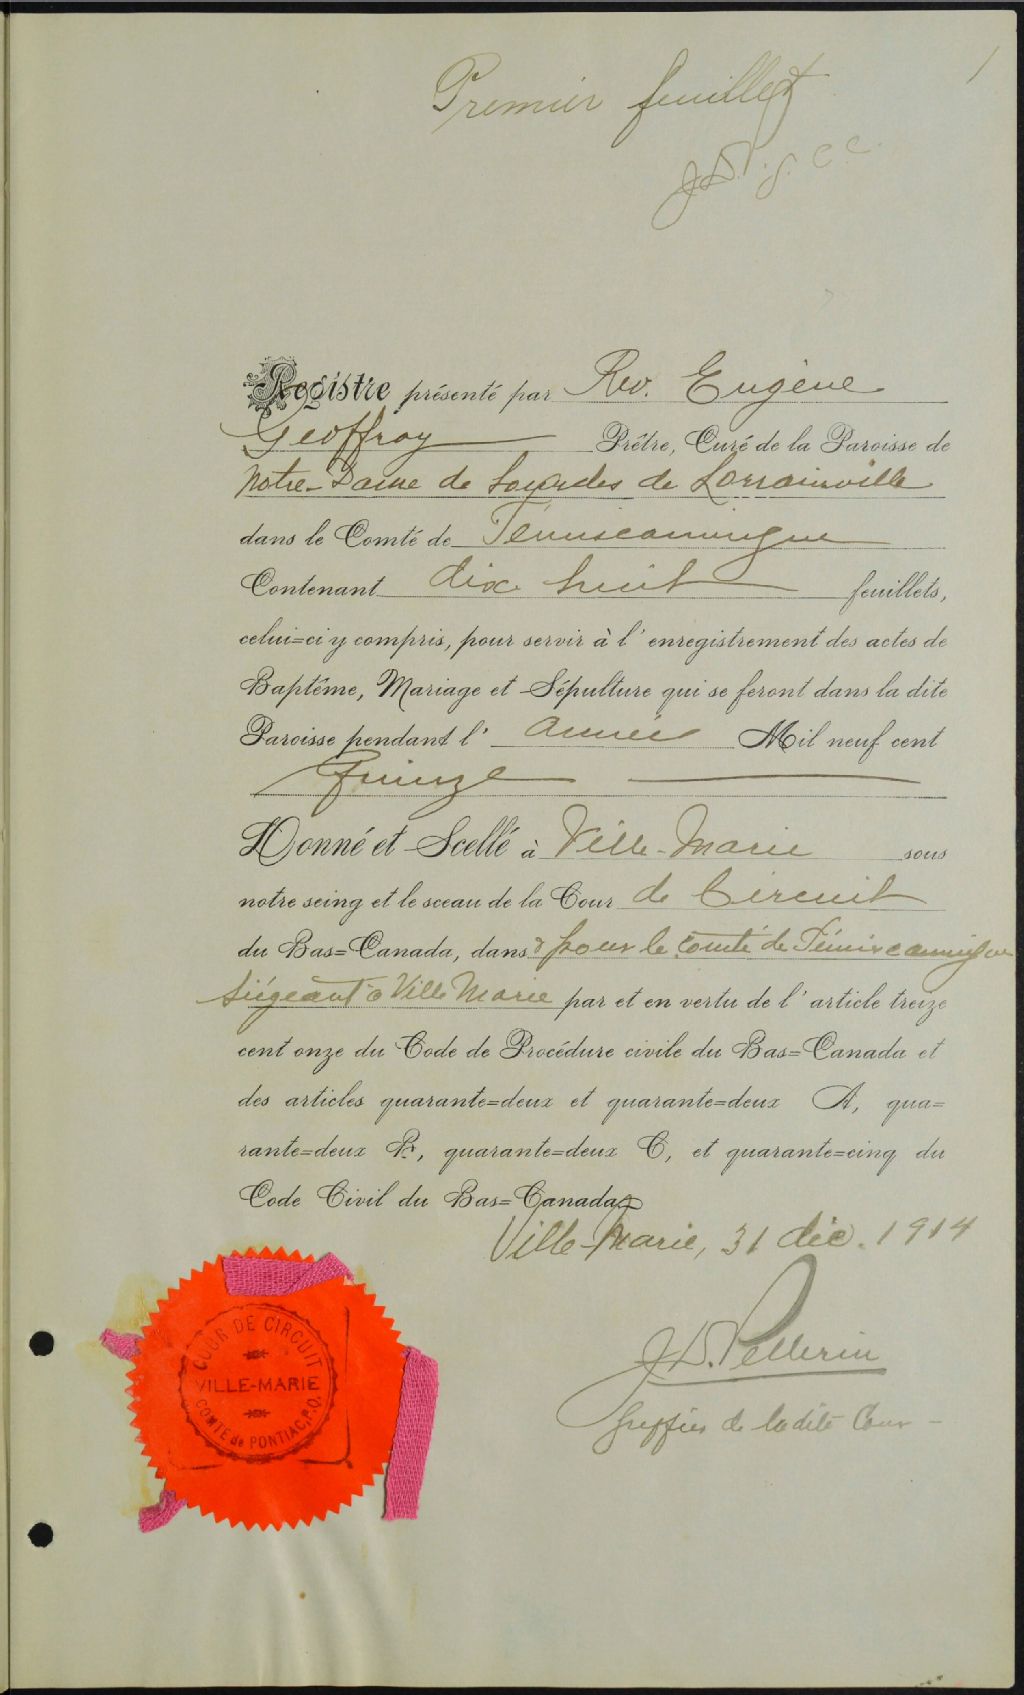 1
Premier feuillet
J.D.P. g. c. c.
Registre présenté par Rev. Eugène
Geoffroy Prêtre, Curé de la Paroisse de
Notre-Dame de Lourdes de Lorrainville
dans le Comté de Témiscamingue
Contenant dix huit feuillets,
celui=ci y compris, pour servir à l'enregistrement des actes de
Baptême, Mariage et Sépulture qui se feront dans la dite
Paroisse pendant l'année Mil neuf cent
Quinze
Donné et Scellé à Ville-Marie sous
notre seing et le sceau de la Cour de Circuit
du Bas=Canada, dans & pour le comté de Témiscamingue
Siégeant à Ville Marie par et en vertu de l'article treize
cent onze du Code de Procédure civile du Bas=Canada et
des articles quarante=deux et quarante=deux A, qua=
rante=deux B, quarante=deux C, et quarante=cinq du
Code Civil du Bas=Canada
Ville-Marie, 31 déc. 1914
J.D. Pellerin
Greffier de ladite Cour
COUR DE CIRCUIT
VILLE-MARIE
COMTÉ de PONTIAC, P.Q.